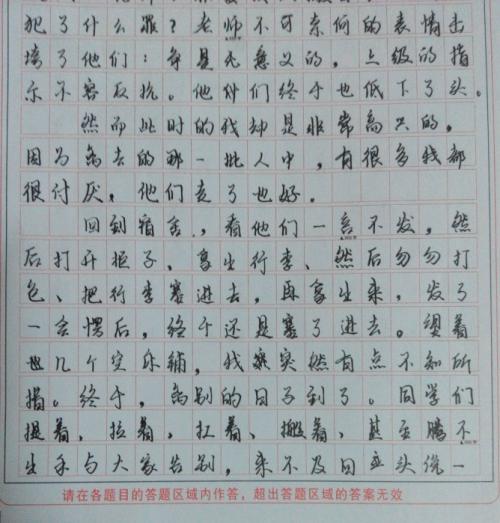 犯了什么罪？老师不可奈何的表情击
垮了他们：争是无意义的，上级的指
示不容反抗。他们终于也低下了头。
然而此时的我却是非常高兴的，
因为离去的那一批人中，有很多我都
很讨厌，他们走了也好。
回到宿舍，看他们一言不发，然
后打开柜子，拿出行李、然后匆匆打
包、把行李塞进去，再拿出来，发了
一会愣后，终于还是塞了进去。望着
也几个空床铺，我突然有点不知所
措。终于，离别的日子到了。同学们
提着，拉着，扛着、搬着，甚至腾不
出手与大家告别，来不及回头统一
请在各题目的答题区域内作答，超出答题区域的答案无效